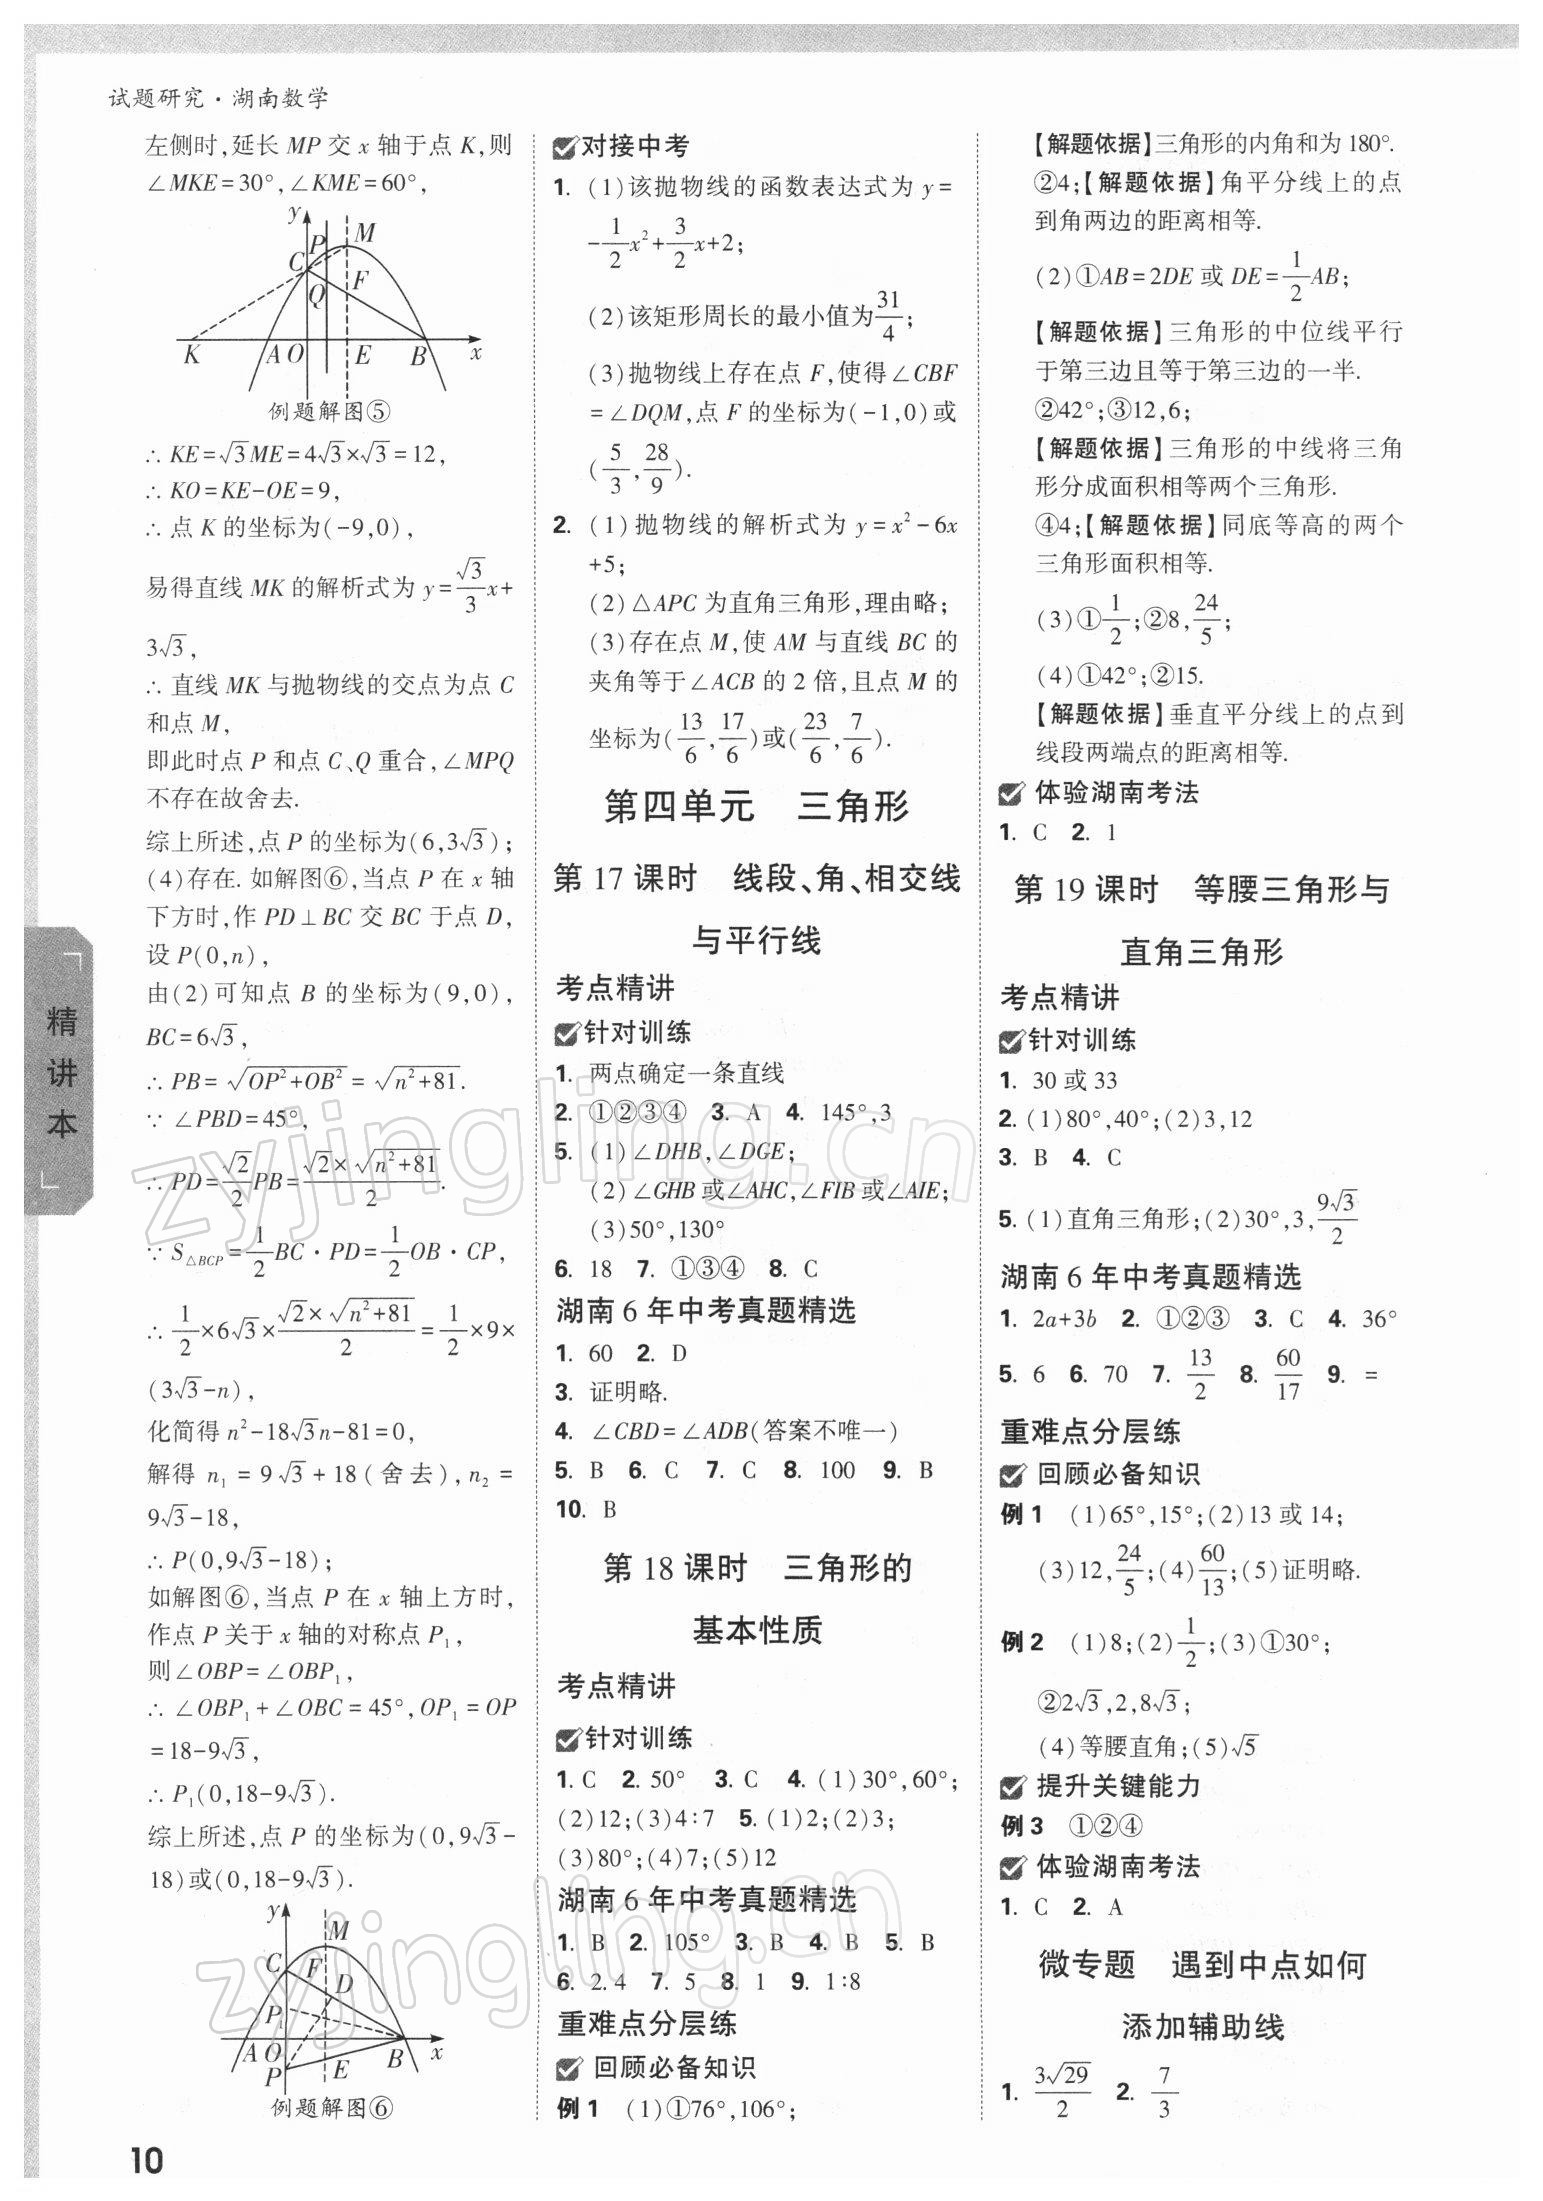 试题研究·湖南数学
左侧时,延长 MP 交 x 轴于点 K,则
∠MKE=30°,∠KME=60°,
y
P
M
C
F
Q
K
A
O
E
B
x
例题解图⑤
∴ KE=√3ME=4√3×√3=12,
∴ KO=KE-OE=9,
∴ 点 K 的坐标为(-9,0),
易得直线 MK 的解析式为 y=√3/3x+
3√3,
∴ 直线 MK 与抛物线的交点为点 C
和点 M,
即此时点 P 和点 C、Q 重合,∠MPQ
不存在故舍去.
综上所述,点 P 的坐标为(6,3√3);
(4)存在. 如解图⑥,当点 P 在 x 轴
下方时,作 PD⊥BC 交 BC 于点 D,
设 P(0,n),
由(2)可知点 B 的坐标为(9,0),
BC=6√3,
∴ PB=√(OP²+OB²)=√(n²+81).
∵ ∠PBD=45°,
∴ PD=√2/2PB=(√2×√(n²+81))/2.
∵ S△BCP=1/2BC·PD=1/2OB·CP,
∴ 1/2×6√3×(√2×√(n²+81))/2=1/2×9×
(3√3-n),
化简得 n²-18√3n-81=0,
解得 n₁=9√3+18(舍去),n₂=
9√3-18,
∴ P(0,9√3-18);
如解图⑥,当点 P 在 x 轴上方时,
作点 P 关于 x 轴的对称点 P₁,
则∠OBP=∠OBP₁,
∴ ∠OBP₁+∠OBC=45°,OP₁=OP
=18-9√3,
∴ P₁(0,18-9√3).
综上所述,点 P 的坐标为(0,9√3-
18)或(0,18-9√3).
y
M
C
F
D
P₁
A
O
P
E
B
x
例题解图⑥
对接中考
1. (1)该抛物线的函数表达式为 y=
-1/2x²+3/2x+2;
(2)该矩形周长的最小值为31/4;
(3)抛物线上存在点 F,使得∠CBF
=∠DQM,点 F 的坐标为(-1,0)或
(5/3,28/9).
2. (1)抛物线的解析式为 y=x²-6x
+5;
(2)△APC 为直角三角形,理由略;
(3)存在点 M,使 AM 与直线 BC 的
夹角等于∠ACB 的 2 倍,且点 M 的
坐标为(13/6,17/6)或(23/6,7/6).
第四单元 三角形
第 17 课时 线段、角、相交线
与平行线
考点精讲
针对训练
1. 两点确定一条直线
2. ①②③④ 3. A 4. 145°,3
5. (1)∠DHB,∠DGE;
(2)∠GHB 或∠AHC,∠FIB 或∠AIE;
(3)50°,130°
6. 18 7. ①③④ 8. C
湖南 6 年中考真题精选
1. 60 2. D
3. 证明略.
4. ∠CBD=∠ADB(答案不唯一)
5. B 6. C 7. C 8. 100 9. B
10. B
第 18 课时 三角形的
基本性质
考点精讲
针对训练
1. C 2. 50° 3. C 4. (1)30°,60°;
(2)12;(3)4∶7 5. (1)2;(2)3;
(3)80°;(4)7;(5)12
湖南 6 年中考真题精选
1. B 2. 105° 3. B 4. B 5. B
6. 2.4 7. 5 8. 1 9. 1∶8
重难点分层练
回顾必备知识
例 1 (1)①76°,106°;
【解题依据】三角形的内角和为 180°.
②4;【解题依据】角平分线上的点
到角两边的距离相等.
(2)①AB=2DE 或 DE=1/2AB;
【解题依据】三角形的中位线平行
于第三边且等于第三边的一半.
②42°;③12,6;
【解题依据】三角形的中线将三角
形分成面积相等两个三角形.
④4;【解题依据】同底等高的两个
三角形面积相等.
(3)①1/2;②8,24/5;
(4)①42°;②15.
【解题依据】垂直平分线上的点到
线段两端点的距离相等.
体验湖南考法
1. C 2. 1
第 19 课时 等腰三角形与
直角三角形
考点精讲
针对训练
1. 30 或 33
2. (1)80°,40°;(2)3,12
3. B 4. C
5. (1)直角三角形;(2)30°,3,9√3/2
湖南 6 年中考真题精选
1. 2a+3b 2. ①②③ 3. C 4. 36°
5. 6 6. 70 7. 13/2 8. 60/17 9. =
重难点分层练
回顾必备知识
例 1 (1)65°,15°;(2)13 或 14;
(3)12,24/5;(4)60/13;(5)证明略.
例 2 (1)8;(2)1/2;(3)①30°;
②2√3,2,8√3;
(4)等腰直角;(5)√5
提升关键能力
例 3 ①②④
体验湖南考法
1. C 2. A
微专题 遇到中点如何
添加辅助线
1. 3√29/2 2. 7/3
精讲本
10
zyjingling.cn
zyjingling.cn